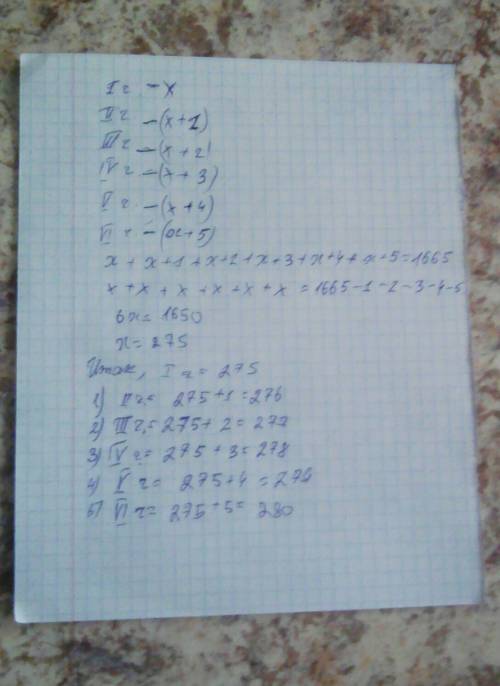 I ч. - x
II ч - (x+1)
III ч - (x+2)
IV ч - (x+3)
V ч - (x+4)
VI ч - (x+5)
x + x+1+x+2+x+3+x+4+x+5=1665
x+x+x+x+x+x=1665-1-2-3-4-5
6x=1650
x=275
Итак, I ч= 275
1) II ч= 275+1=276
2) III ч=275+2=277
3) IV ч= 275+3=278
4) V ч= 275+4=279
5) VI ч= 275+5=280